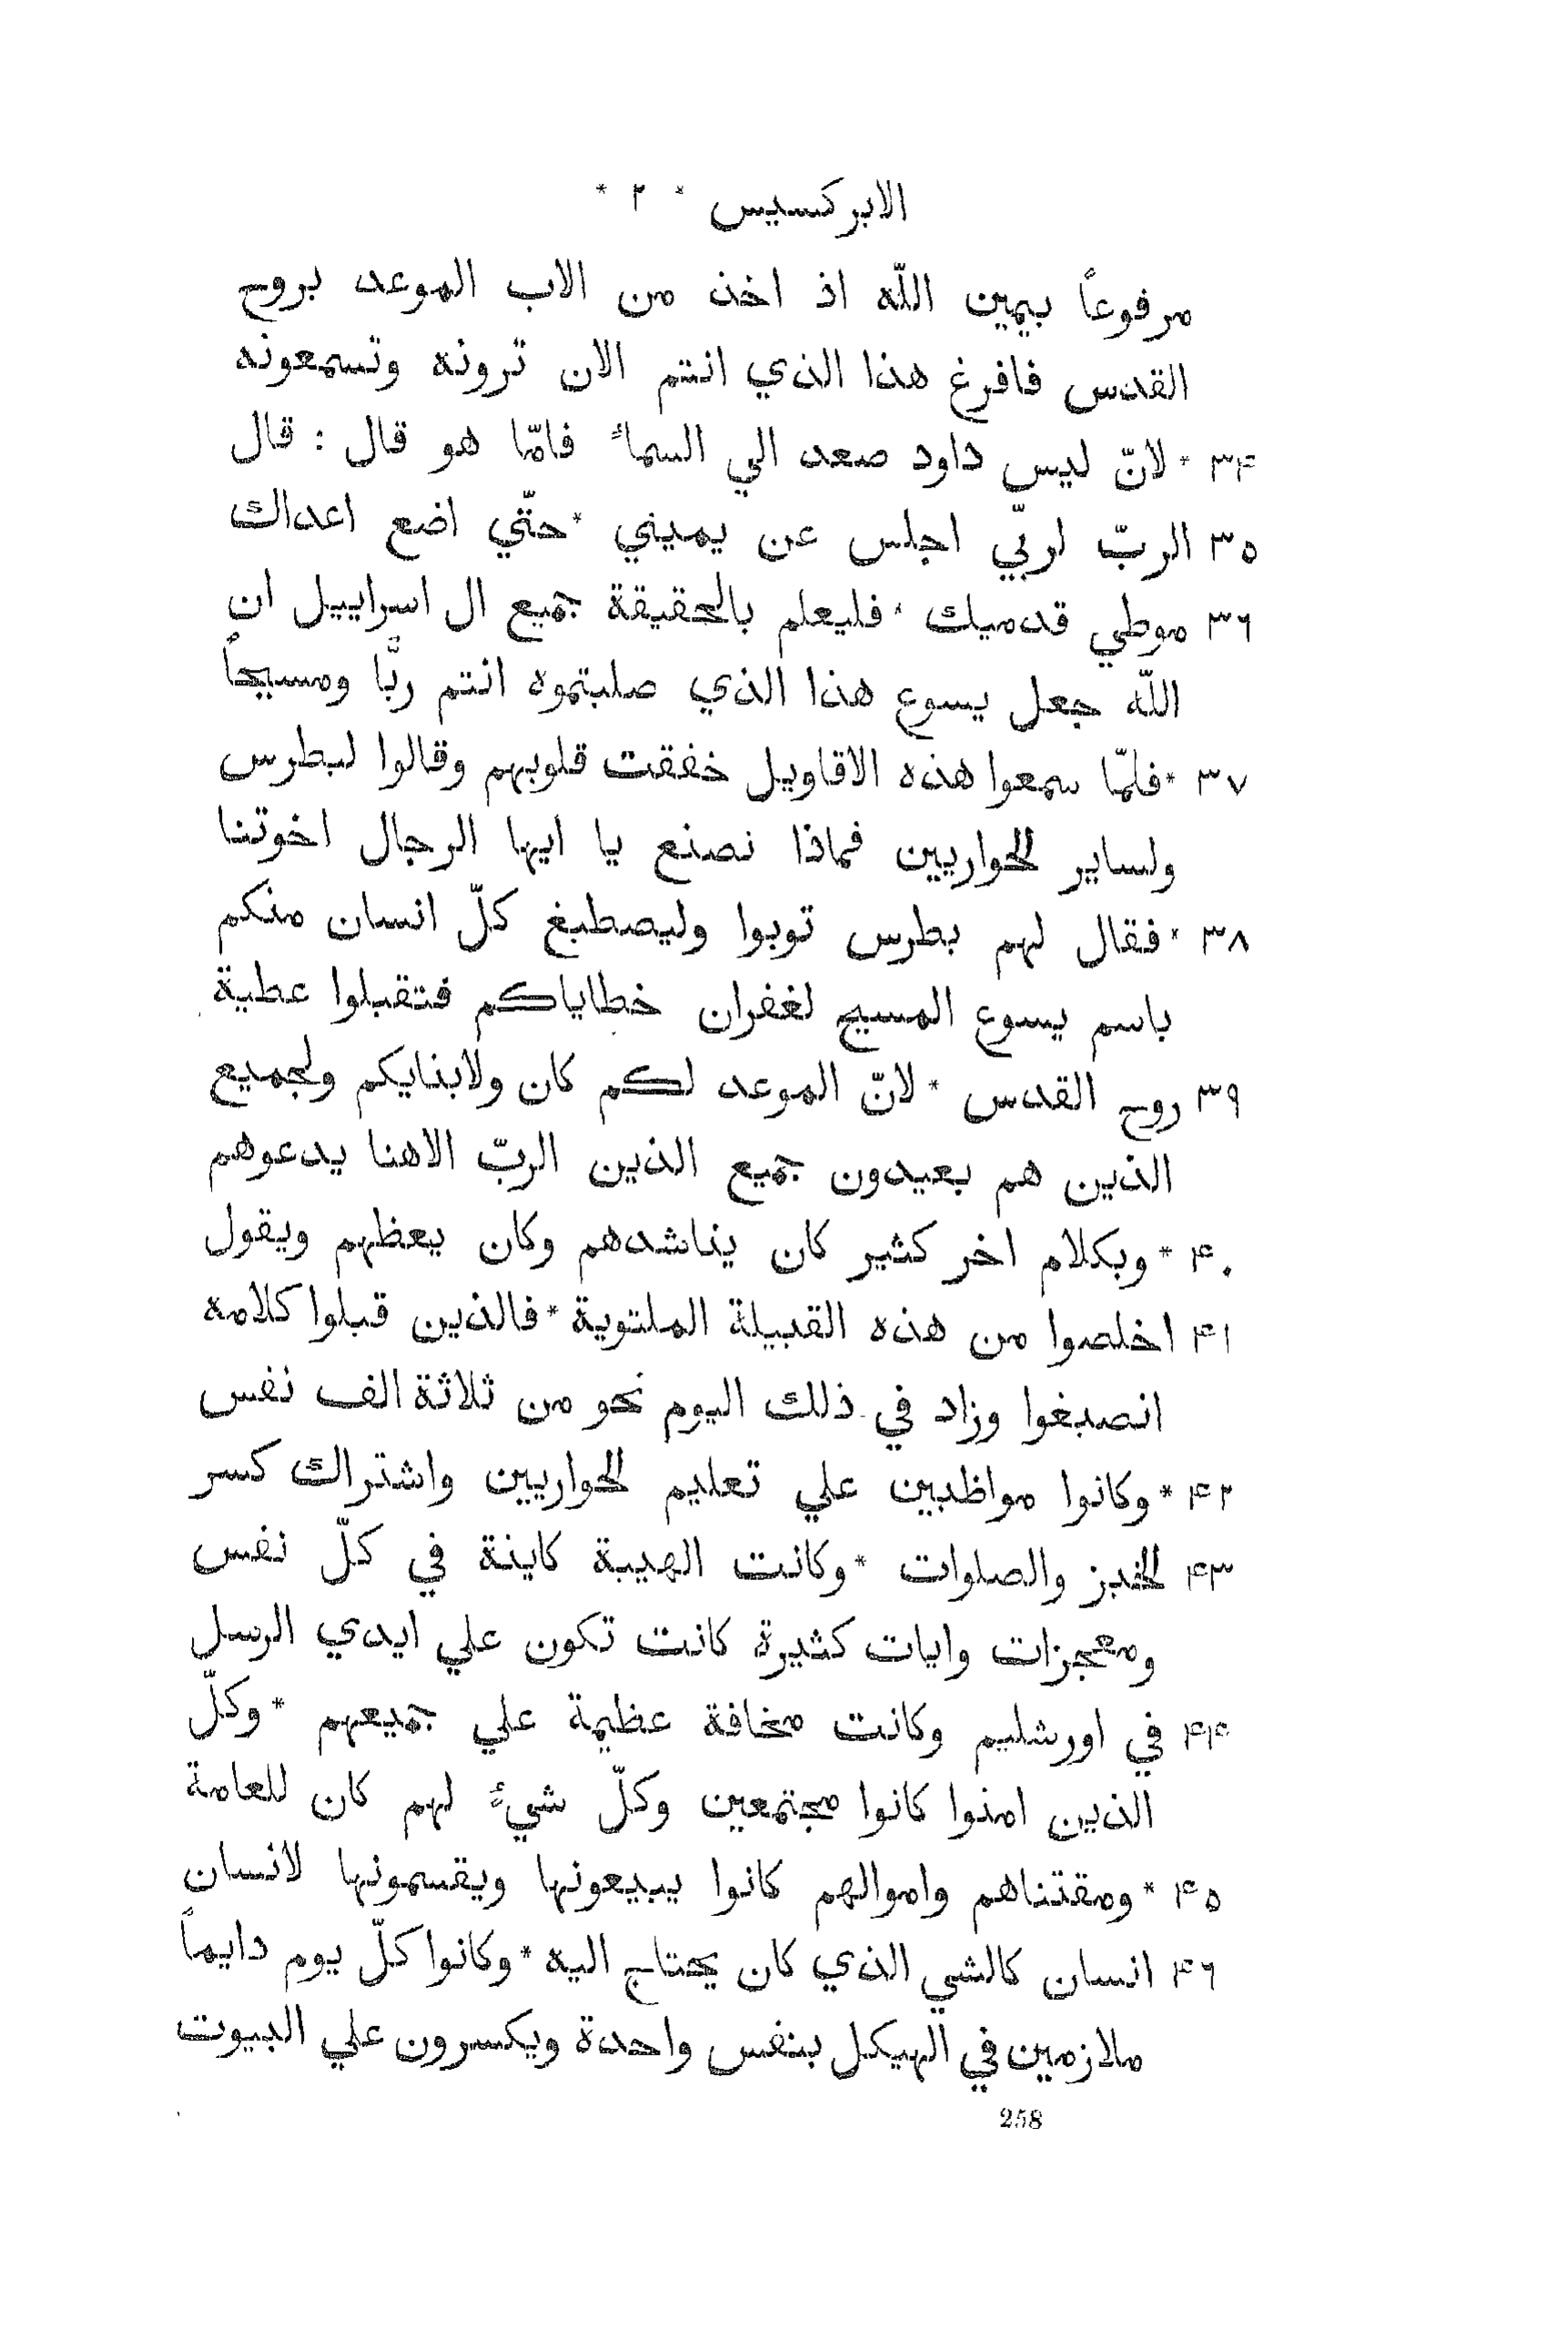 الابركسيس * ٢ *
مرفوعاً بيمين اللّه اذ اخذ من الاب الموعد بروح
القدس فافرغ هذا الذي انتم الان ترونه وتسمعونه
٣۴ * لانّ ليس داود صعد الي السماءً فامّا هو قال : قال
٣٥ الربّ لربّي اجلس عن يميني * حتّي اضع اعداك
٣٦ موطي قدميك * فليعلم بالحقيقة جميع ال اسراييل ان
اللّه جعل يسوع هذا الذي صلبتموه انتم ربًّا ومسيحاً
٣٧ * فلمّا سمعوا هذه الاقاويل خفقت قلوبهم وقالوا لبطرس
ولساير الحواريين فماذا نصنع يا ايها الرجال اخوتنا
٣٨ * فقال لهم بطرس توبوا وليصطبغ كلّ انسان منكم
باسم يسوع المسيح لغفران خطاياكم فتقبلوا عطية
٣٩ روح القدس * لانّ الموعد لكم كان ولابنايكم ولجميع
الذين هم بعيدون جميع الذين الربّ الاهنا يدعوهم
۴٠ * وبكلام اخر كثير كان يناشدهم وكان يعظهم ويقول
۴١ اخلصوا من هذه القبيلة الملتوية * فالذين قبلوا كلامه
انصبغوا وزاد في ذلك اليوم نحو من ثلاثة الف نفس
۴٢ * وكانوا مواظبين علي تعليم الحواريين واشتراك كسر
۴٣ الخبز والصلوات * وكانت الهيبة كاينة في كلّ نفس
ومعجزات وايات كثيرة كانت تكون علي ايدي الرسل
۴۴ في اورشليم وكانت مخافة عظيمة علي جميعهم * وكلّ
الذين امنوا كانوا مجتمعين وكلّ شيءً لهم كان للعامة
۴٥ * ومقتناهم واموالهم كانوا يبيعونها ويقسمونها لانسان
۴٦ انسان كالشي الذي كان يحتاج اليه * وكانوا كلّ يوم دايماً
ملازمين في الهيكل بنفس واحدة ويكسرون علي البيوت
258